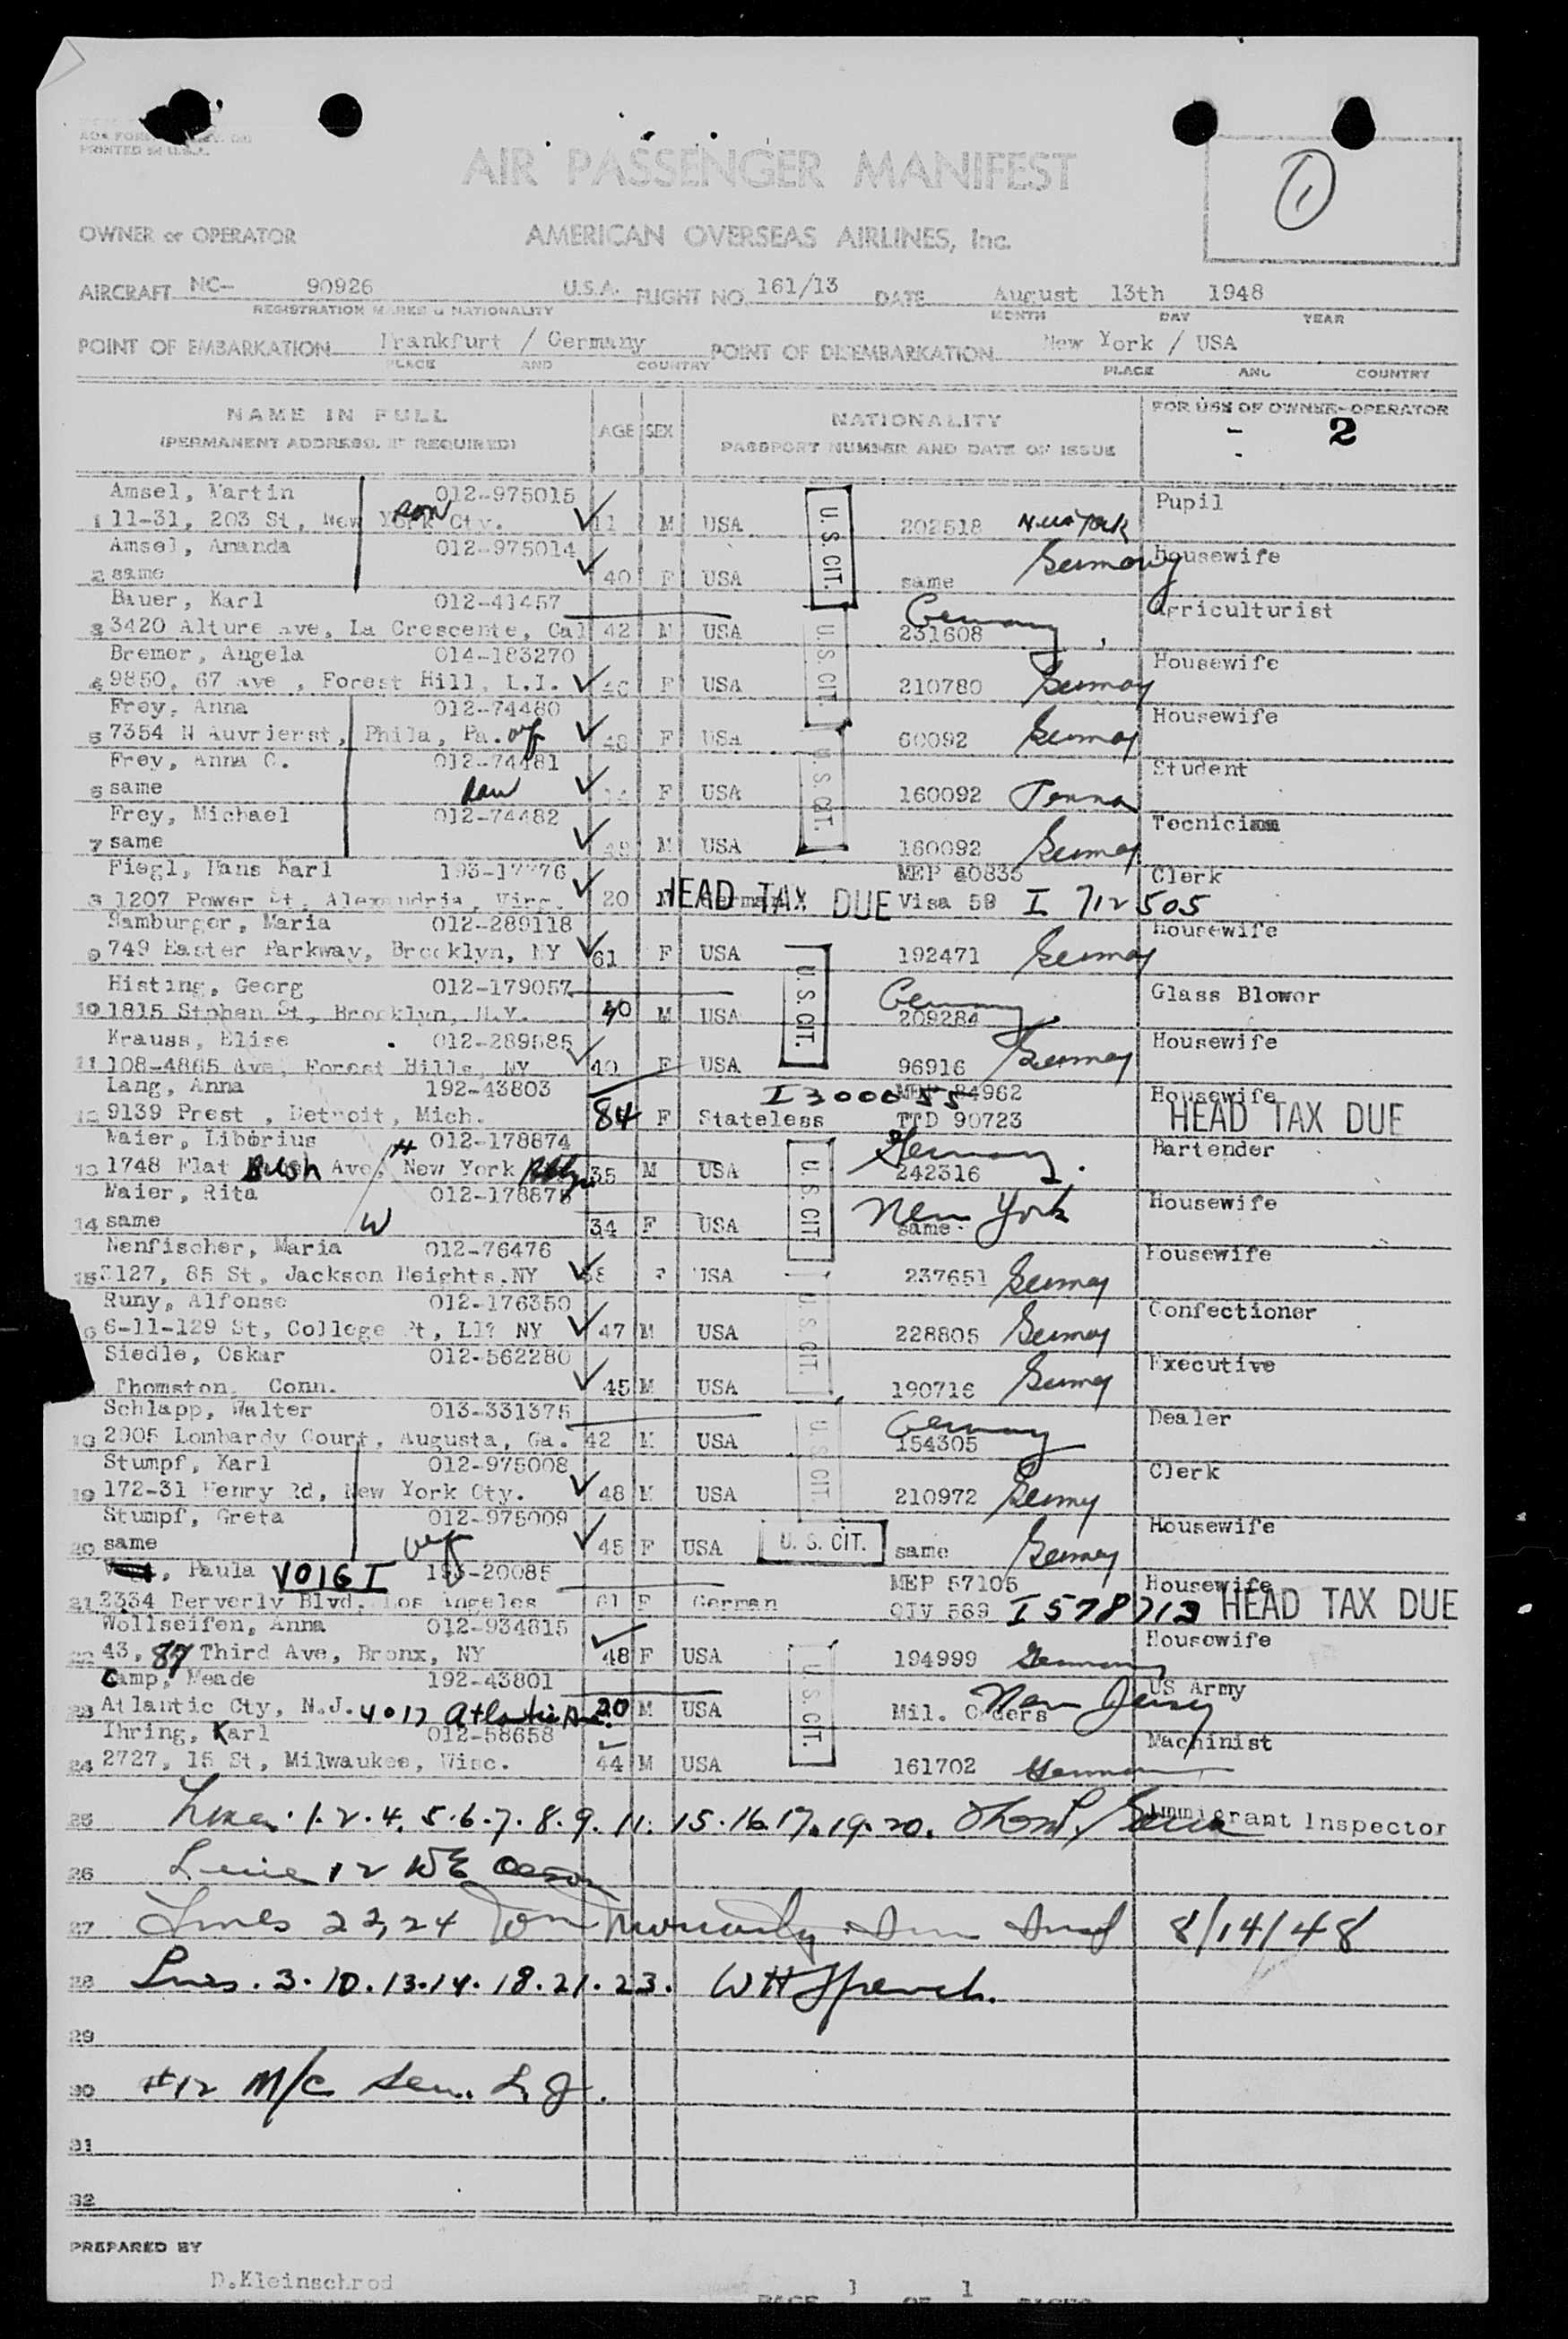 PRINTED IN U.S.A.
1
AIR PASSENGER MANIFEST
OWNER or OPERATOR AMERICAN OVERSEAS AIRLINES, Inc.
AIRCRAFT NC- 90926 U.S.A. FLIGHT NO. 161/13 DATE August 13th 1948
REGISTRATION MARKS & NATIONALITY MONTH DAY YEAR
POINT OF EMBARKATION Frankfurt / Germany POINT OF DISEMBARKATION New York / USA
PLACE AND COUNTRY PLACE AND COUNTRY
NAME IN FULL AGE SEX NATIONALITY FOR USE OF OWNER-OPERATOR
(PERMANENT ADDRESS, IF REQUIRED) PASSPORT NUMBER AND DATE OF ISSUE 2
Amsel, Martin 012-975015 Pupil
1 11-31, 203 St, New York Cty. son 11 M USA U.S. CIT. 202518 New York
Amsel, Amanda 012-975014 Housewife
2 same 40 F USA same Germany
Bauer, Karl 012-41457 Agriculturist
3 3420 Alture Ave, La Crescente, Cal 42 M USA U.S. CIT. 231608 Germany
Bremer, Angela 014-183270 Housewife
4 9850, 67 Ave , Forest Hill, L.I. F USA 210780 Germany
Frey, Anna 012-74480 Housewife
5 7354 N Auvrierst, Phila, Pa. wf 48 F USA U.S. CIT. 60092 Germany
Frey, Anna C. 012-74481 Student
6 same dau 14 F USA 160092 Penna
Frey, Michael 012-74482 Tecnician
7 same 49 M USA 160092 Germany
Fiegl, Hans Karl 193-17776 MEP 60835 Clerk
8 1207 Power St, Alexandria, Virg. 20 M German HEAD TAX DUE Visa 59 I 712505
Hamburger, Maria 012-289118 Housewife
9 749 Easter Parkway, Brooklyn, NY 61 F USA U.S. CIT. 192471 Germany
Histing, Georg 012-179057 Glass Blower
10 1815 Stphan St, Brooklyn, N.Y. 40 M USA 209284 Germany
Krauss, Elise 012-289585 Housewife
11 108-4865 Ave, Forest Hills, NY 40 F USA 96916 Germany
Lang, Anna 192-43803 I300055 MEP 84962 Housewife
12 9139 Prest , Detroit, Mich. 84 F Stateless TTD 90723 HEAD TAX DUE
Maier, Liborius H 012-178874 Bartender
13 1748 Flat Bush Ave, New York Bklyn 35 M USA U.S. CIT. 242316 Germany
Maier, Rita 012-178875 Housewife
14 same W 34 F USA same New York
Nenfischer, Maria 012-76476 Housewife
15 3127, 85 St, Jackson Heights, NY F USA 237651 Germany
Runy, Alfonso 012-176350 Confectioner
6-11-129 St, College Pt, NY 47 M USA U.S. CIT. 228805 Germany
Siedle, Oskar 012-562280 Executive
Thomston, Conn. 45 M USA 190716 Germany
Schlapp, Walter 013-331375 Dealer
18 2905 Lombardy Court, Augusta, Ga. 42 M USA U.S. CIT. 154305 Germany
Stumpf, Karl 012-975008 Clerk
19 172-31 Henry Rd, New York Cty. 48 M USA 210972 Germany
Stumpf, Greta 012-975009 Housewife
20 same wf 45 F USA U. S. CIT. same Germany
, Paula VOIGT 193-20085 MEP 57105 Housewife
21 2334 Berverly Blvd, Los Angeles 61 F German QIV 569 I 578712 HEAD TAX DUE
Wollseifen, Anna 012-934815 Housewife
22 43, 87 Third Ave, Bronx, NY 48 F USA U.S. CIT. 194999 Germany
Camp, Meade 192-43801 US Army
23 Atlantic Cty, N.J. 4017 Atlantic Ave. 20 M USA Mil. Orders New Jersey
Ihring, Karl 012-58658 Machinist
24 2727, 15 St, Milwaukee, Wisc. 44 M USA 161702 Germany
25 Lines 1. 2. 4. 5. 6. 7. 8. 9. 11. 15. 16. 17. 19. 20. Immigrant Inspector
26 Line 12
27 Lines 22, 24 8/14/48
28 Lines. 3. 10. 13. 14. 18. 21. 23. WH
29
30 #12 M/C
31
32
PREPARED BY
D.Kleinschrod
PAGE 1 OF 1 PAGES